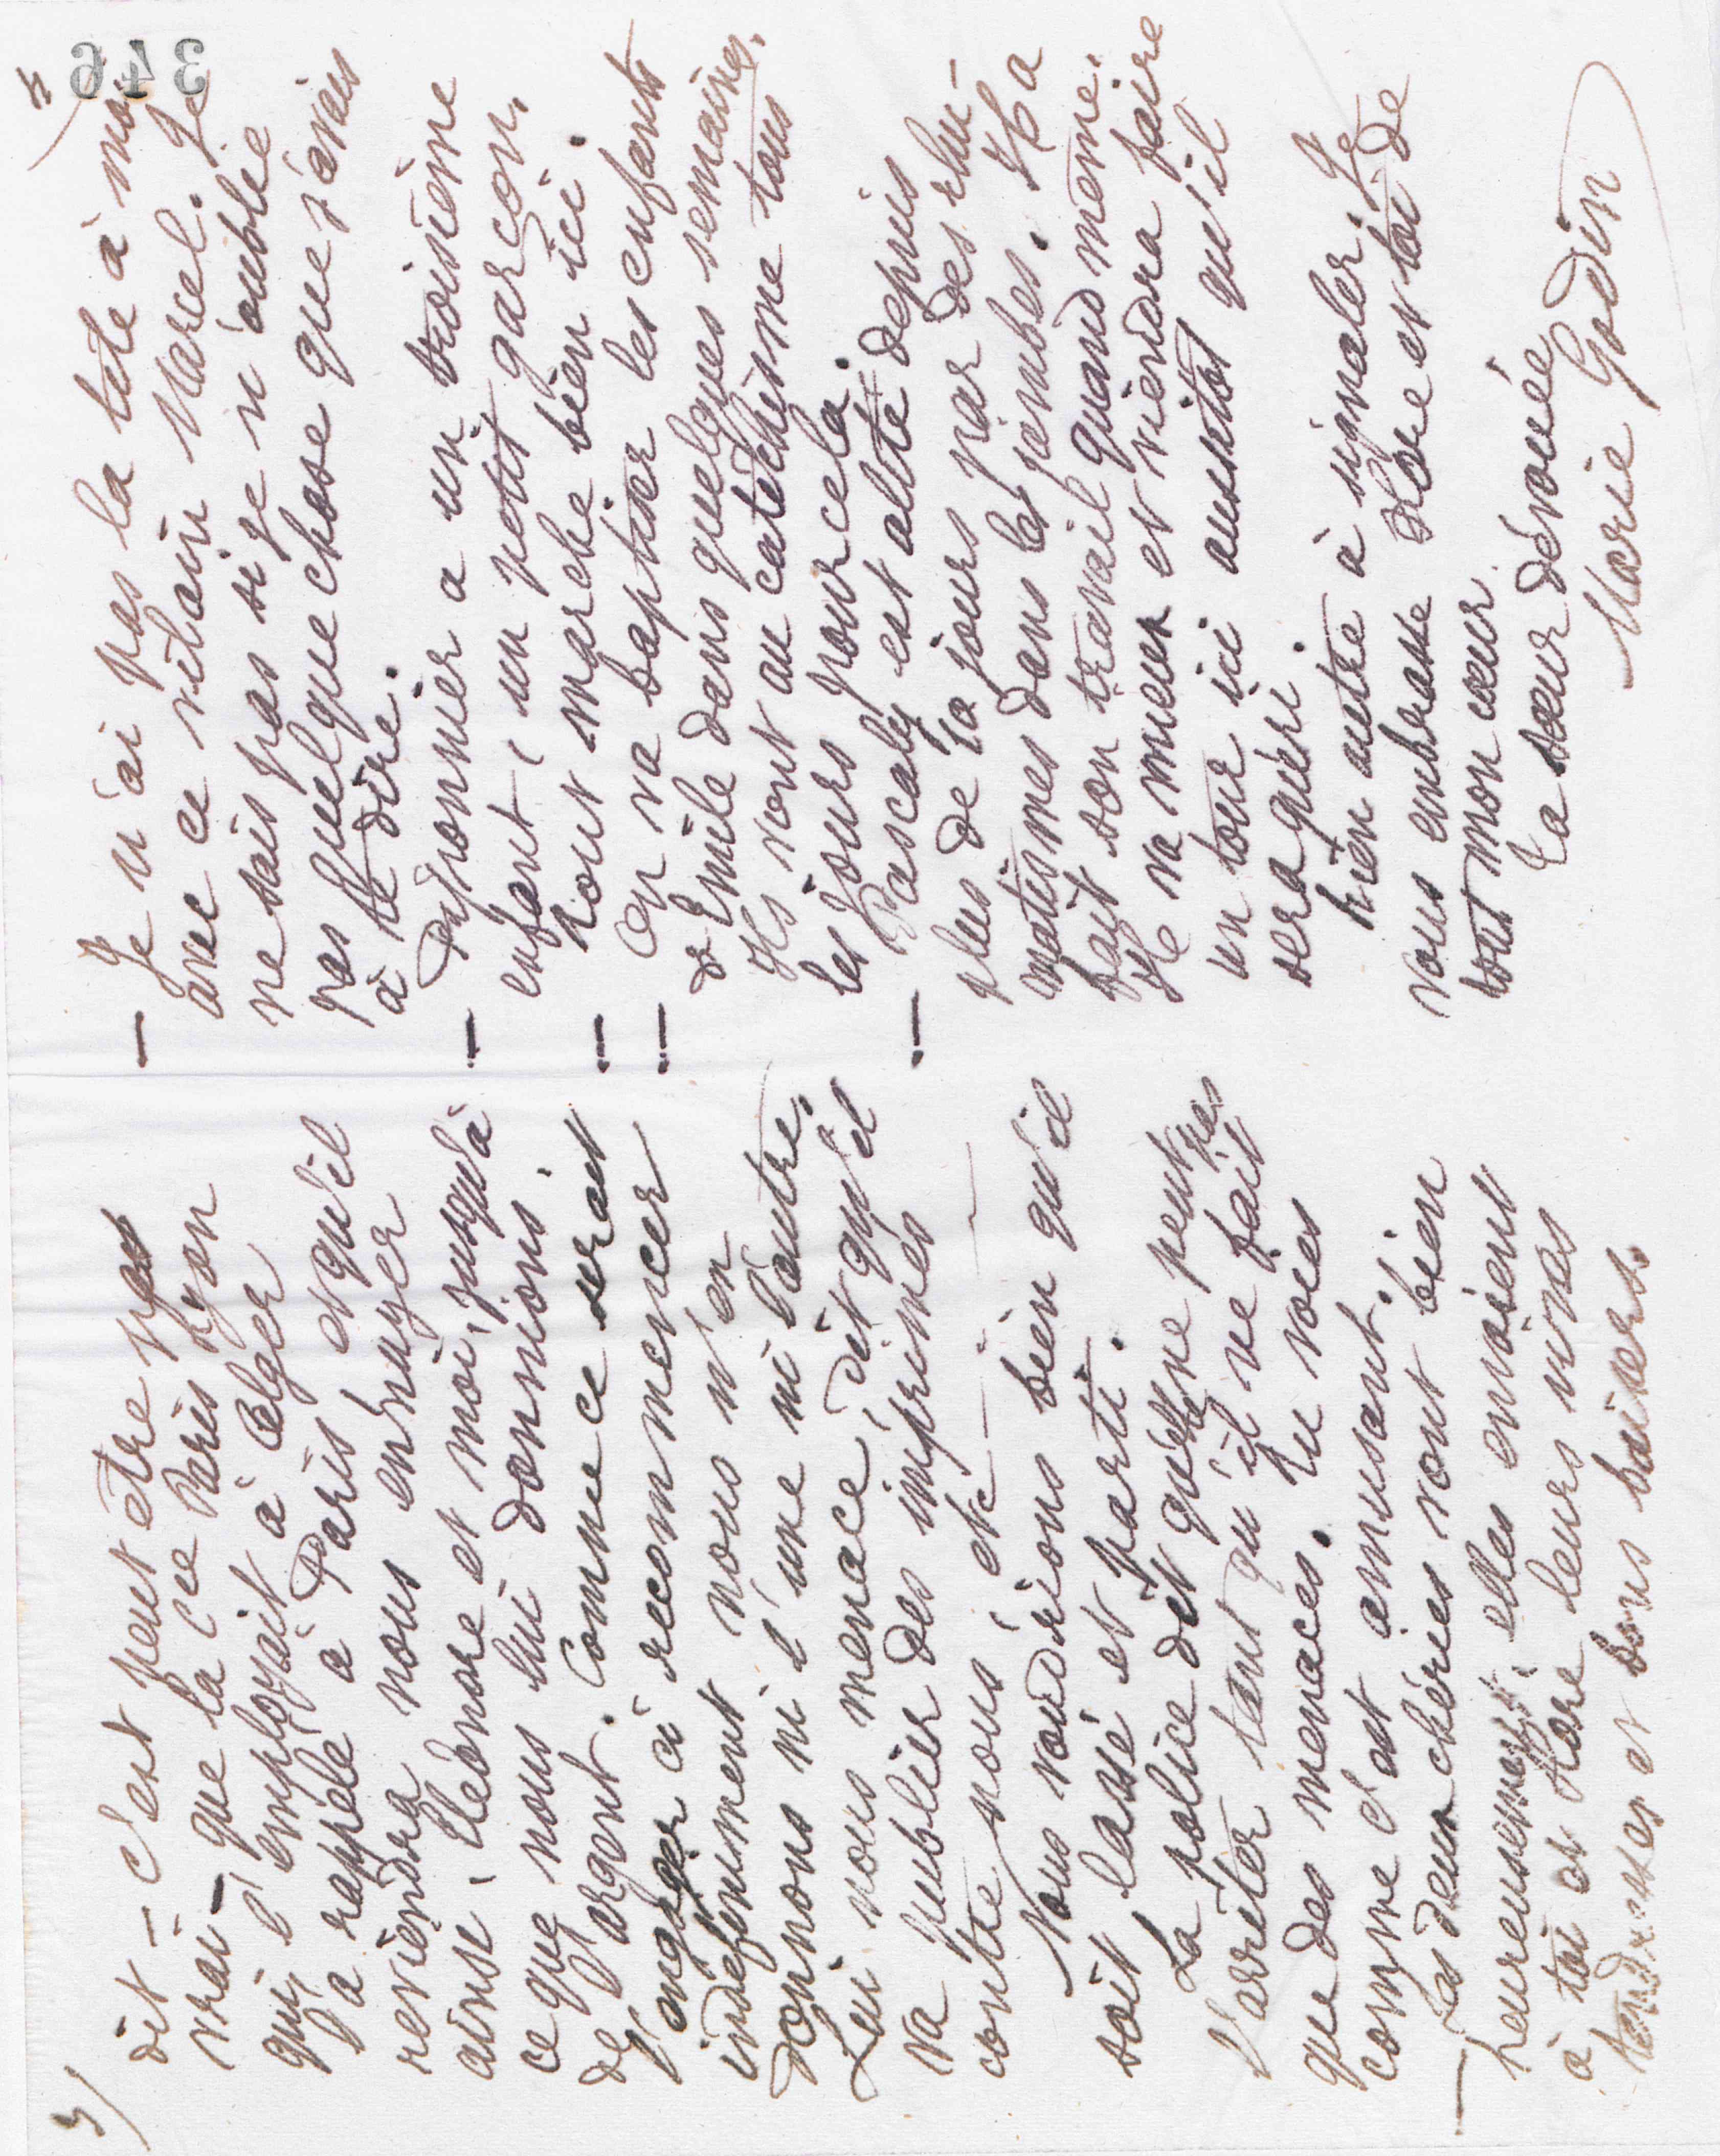 3)
dit - c'est peut être pas
vrai - que la Cie Paris Lyon
qui l'employait à Alger
l'a rappelé à Paris et qu'il
reviendra nous enrayer
ainsi, Eléonore et moi, jusqu'à
ce que nous lui donnions
de l'argent. Comme ce serait
l'engager à recommencer
indefiniment nous n'en
donnons ni l'une ni l'autre.
Lui nous menace, dit qu'il
va publier des imprimés
contre nous, etc —
Nous voudrions bien qu'il
soit lassé et parti.
La police dit qu'elle ne peut pas
l'arrêter tant qu'il ne fait
que des menaces. Tu vois
comme c'est amusant.
— Les deux chéries vont bien
heureusement; elles envoient
à toi et Flore leurs vives
tendresses et bons baisers.
4)
346
— Je n'ai pas la tête à moi
avec ce vilain Marcel. Je
ne sais pas si je n'oublie
pas quelque chose que j'avais
à te dire.
— Deponnier a un troisième
enfant, un petit garçon.
— Tout marche bien ici.
— On va baptiser les enfants
d'Emile dans quelques semaines.
Ils vont au catéchisme tous
les jours pour cela.
— Pascaly est alité depuis
plus de 10 jours par des rhu-
matismes dans les jambes. Il a
fait son travail quand même.
Il va mieux et viendra faire
un tour ici aussitôt qu'il
sera guéri.
Rien autre à signaler. Je
vous embrasse Flore et toi de
tout mon cœur.
Ta sœur dévouée
Marie Godin